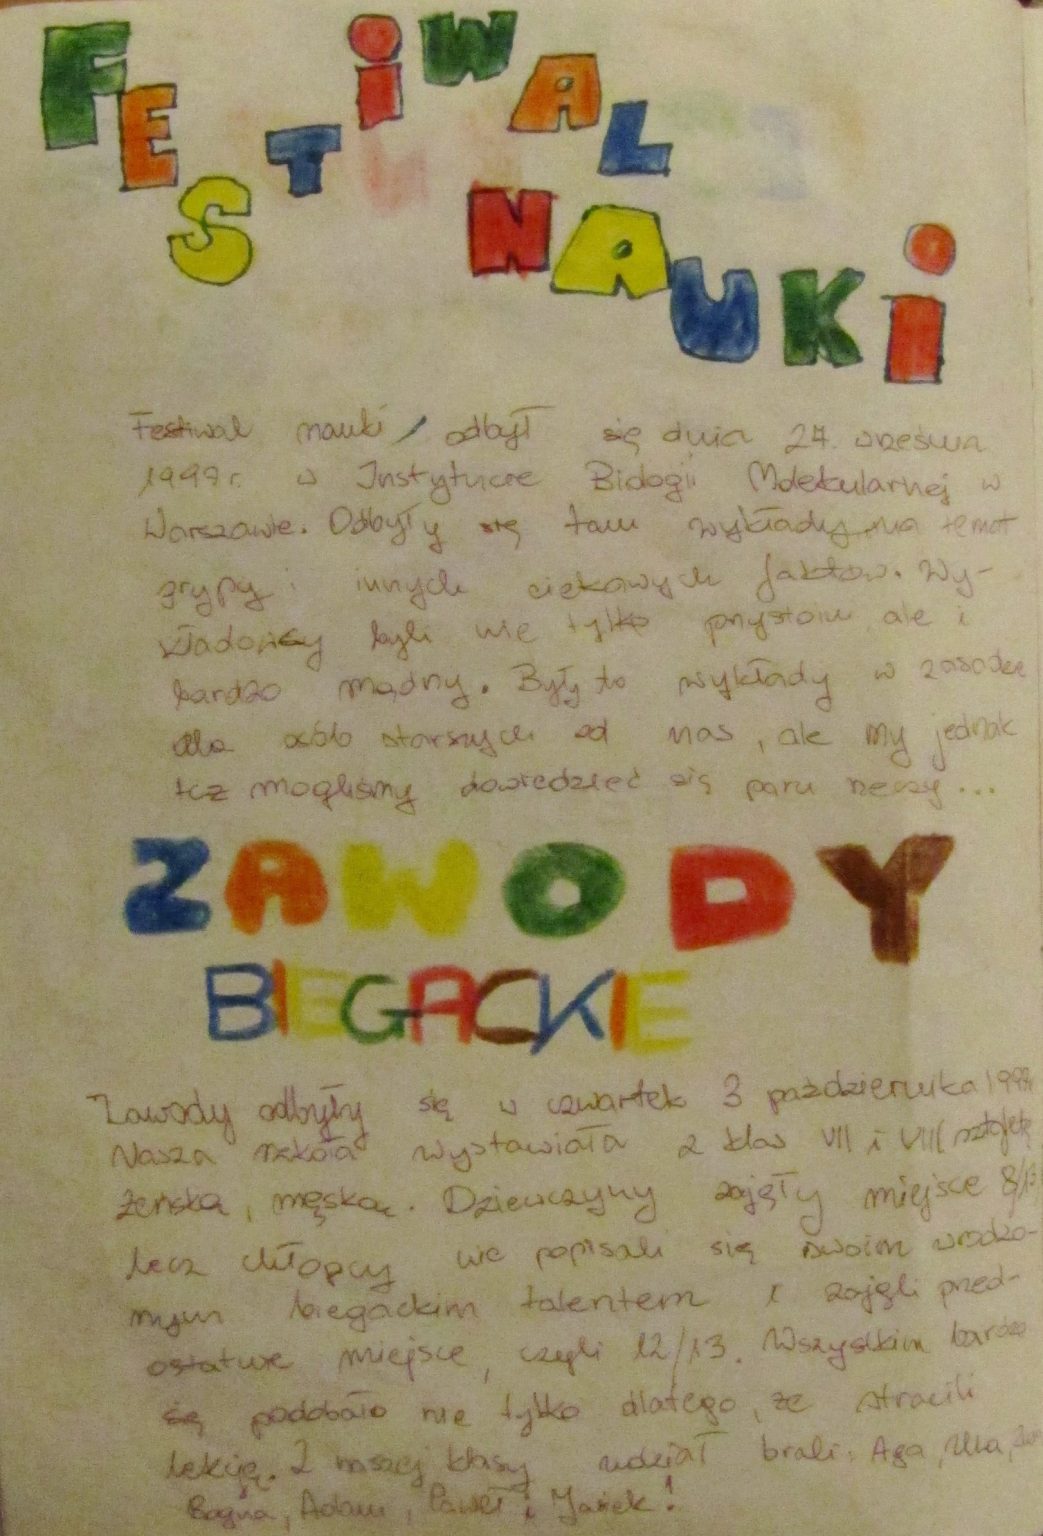 FESTIWAL
NAUKI
Festiwal nauki odbył się dnia 24. września
1999r. w Instytucie Biologii Molekularnej w
Warszawie. Odbyły się tam wykłady na temat
grypy i innych ciekawych faktów. Wy-
kładowcy byli nie tylko przystojni ale i
bardzo mądrzy. Były to wykłady w zasadzie
dla osób starszych od nas, ale my jednak
też mogliśmy dowiedzieć się paru rzeczy...
ZAWODY
BIEGACKIE
Zawody odbyły się w czwartek 3 października
Nasza szkoła wystawiała z klas VII i VIII sztafetę
żeńską, męską. Dziewczyny zajęły miejsce 8/13
lecz chłopcy nie popisali się swoim wrodzo-
nym biegackim talentem i zajęli przed-
ostatnie miejsce, czyli 12/13. Wszystkim bardzo
się podobało nie tylko dlatego, że stracili
lekcje. Z naszej klasy udział brali: Aga, Ula,
Bogna, Adam, Paweł i Jasiek!